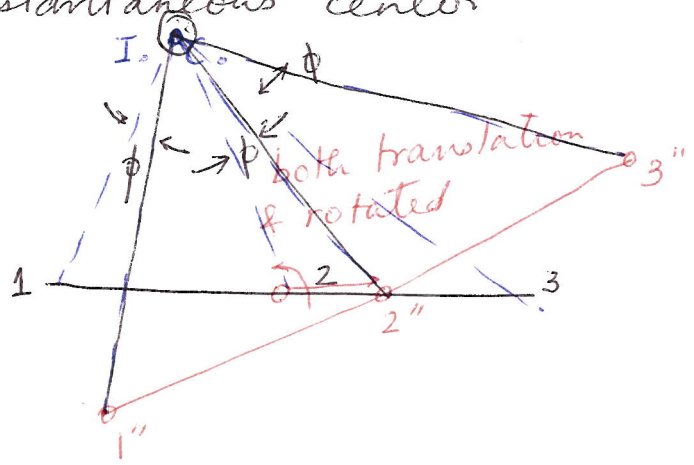 stantaneous center
I. C.
ϕ
ϕ
ϕ
both translation
& rotated
3"
1
2
3
2"
1"